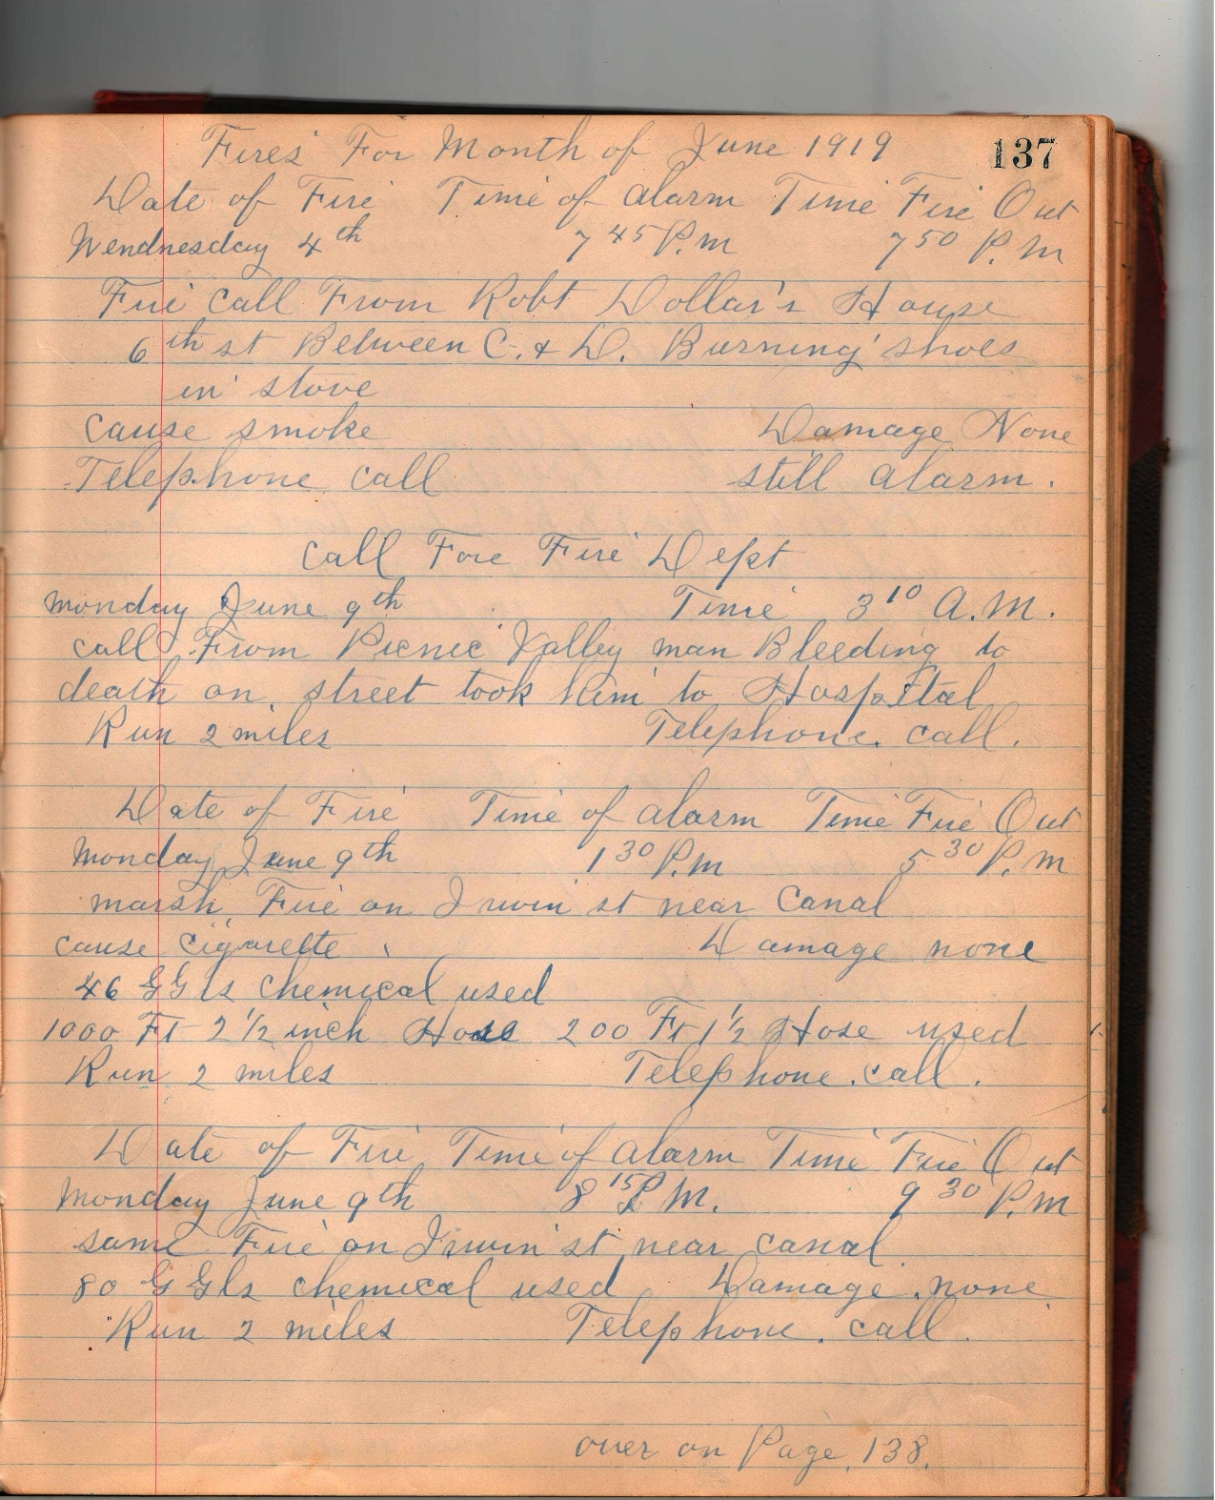 137
Fires For Month of June 1919
Date of Fire Time of alarm Time Fire Out
Wendnesday 4th 7 45 P.m 7 50 P.m
Fire call From Robt Dollar's House
6th st Between C. & D. Burning shoes
in stove
cause smoke Damage None
Telephone call still alarm.
call Fore Fire Dept
monday June 9th Time 3 10 A.M.
call From Picnic Valley man Bleeding to
death on street took him to Hospital
Run 2 miles Telephone call.
Date of Fire Time of alarm Time Fire Out
monday June 9th 1 30 P.m 5 30 P.m
marsh Fire on Irwin st near Canal
cause cigarette Damage none
46 GGls chemical used
1000 Ft 2 1/2 inch Hose 200 Ft 1 1/2 Hose used
Run 2 miles Telephone call.
Date of Fire Time of alarm Time Fire Out
monday June 9th 8 15 P.M. 9 30 P.m
same Fire on Irwin st near canal
80 GGls chemical used Damage none
Run 2 miles Telephone call.
over on Page 138.